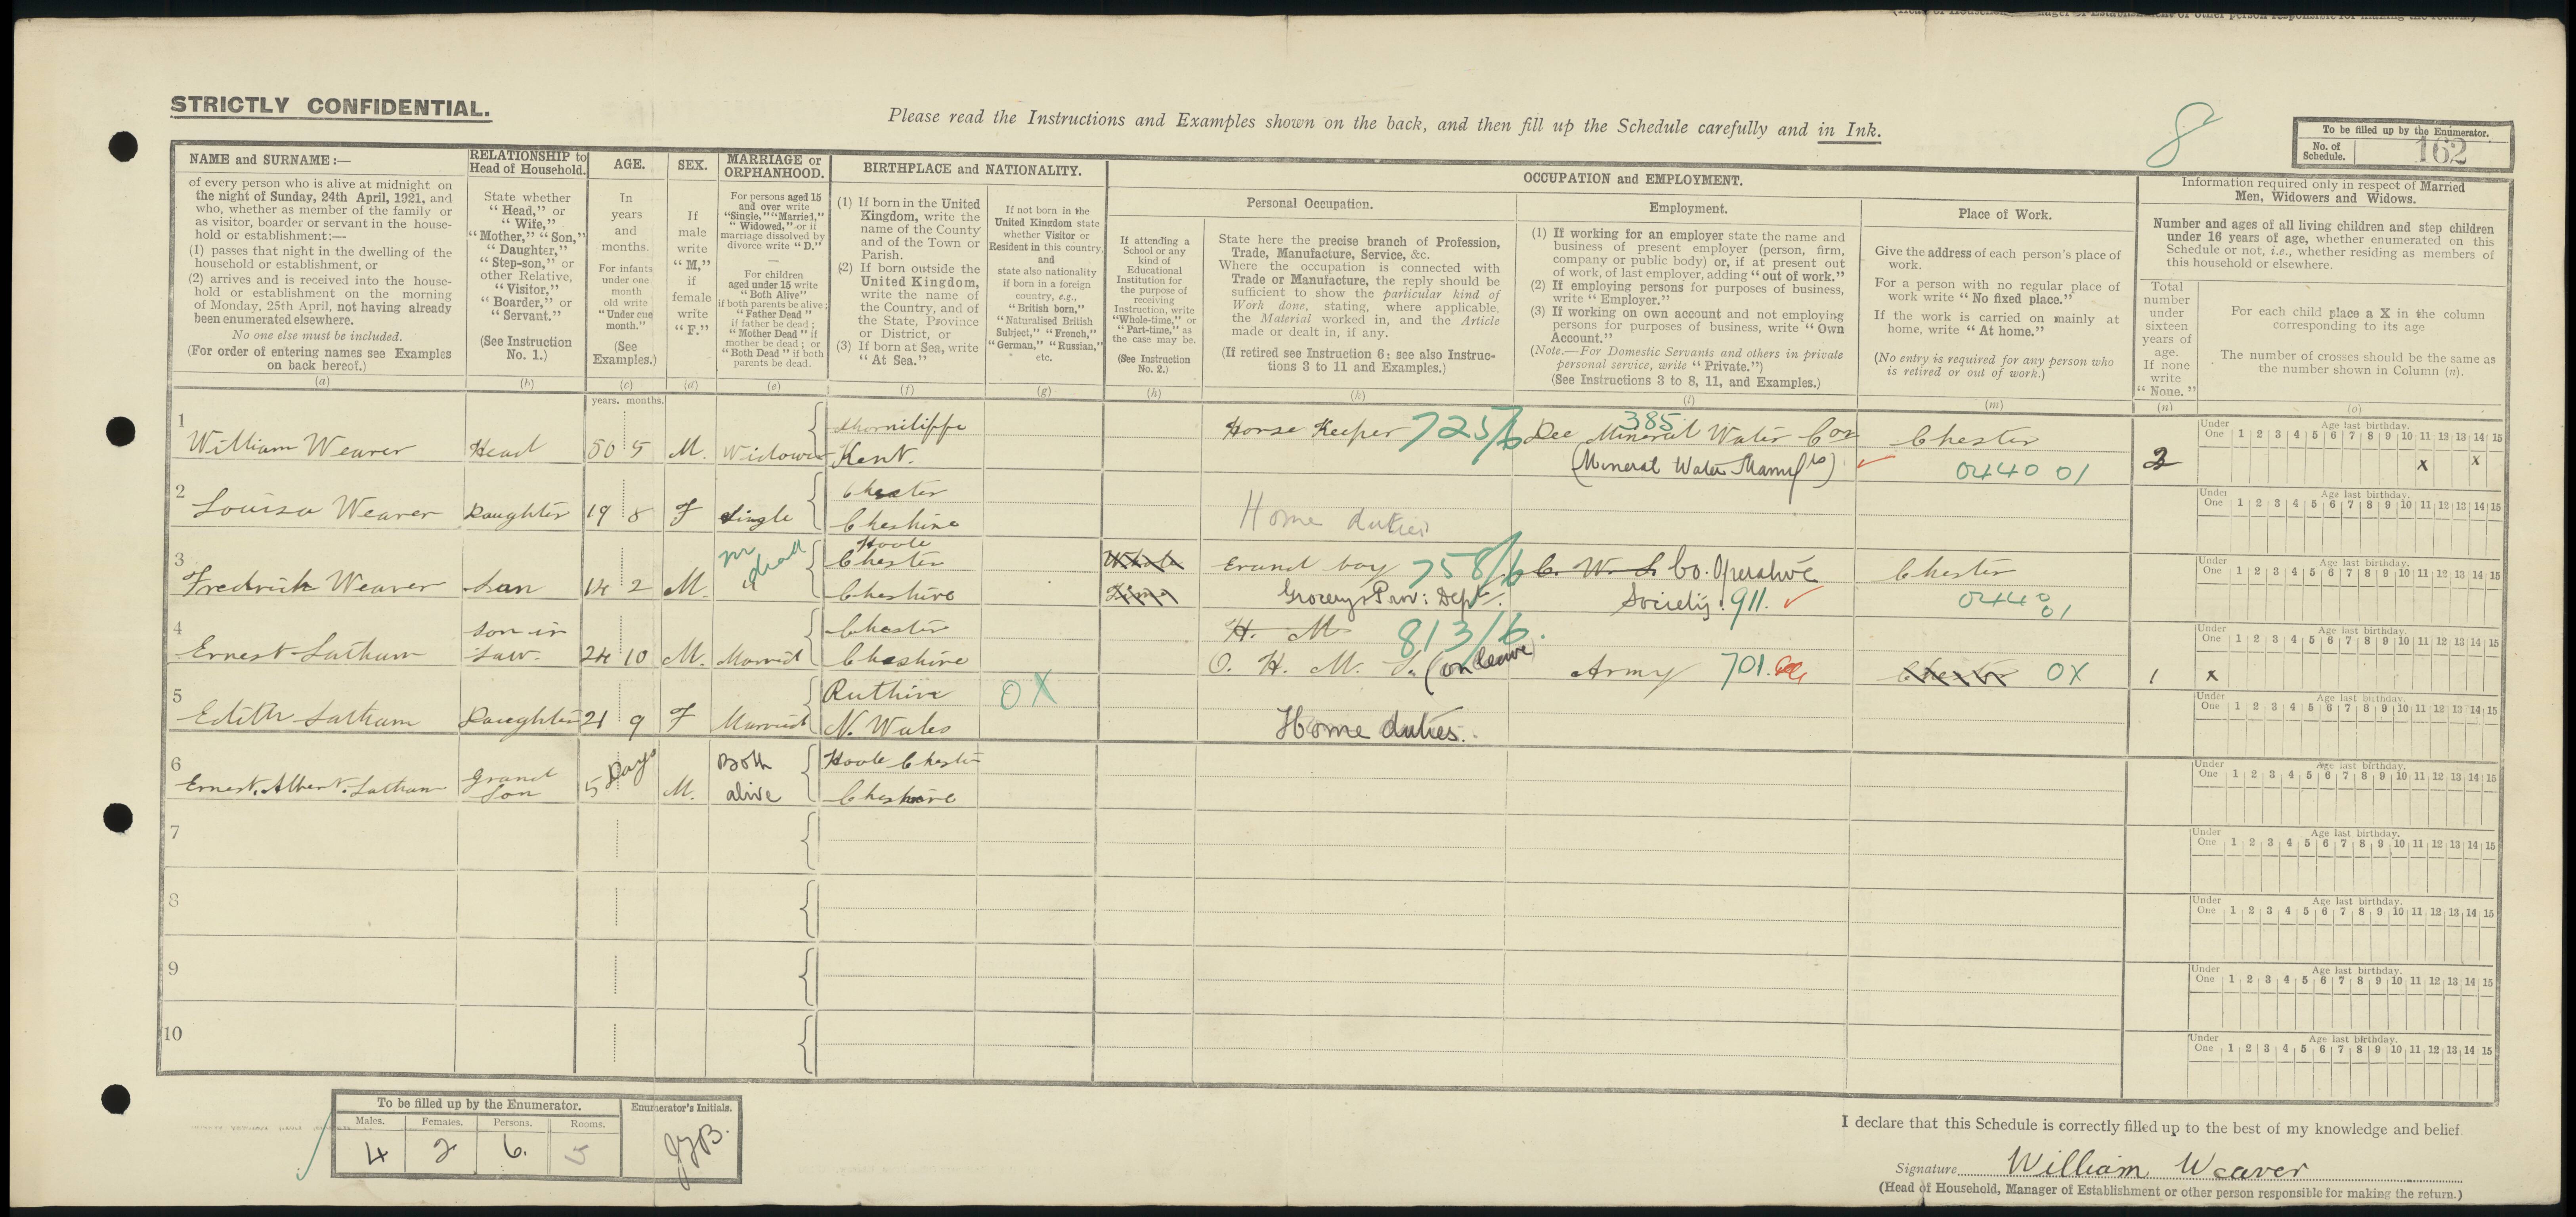 STRICTLY CONFIDENTIAL.
Please read the Instructions and Examples shown on the back, and then fill up the Schedule carefully and in Ink.
8
To be filled up by the Enumerator.
No. of Schedule. 162
NAME and SURNAME:—
of every person who is alive at midnight on
the night of Sunday, 24th April, 1921, and
who, whether as member of the family or
as visitor, boarder or servant in the house-
hold or establishment:—
(1) passes that night in the dwelling of the
household or establishment, or
(2) arrives and is received into the house-
hold or establishment on the morning
of Monday, 25th April, not having already
been enumerated elsewhere.
No one else must be included.
(For order of entering names see Examples
on back hereof.)
(a)
RELATIONSHIP to
Head of Household.
State whether
"Head," or
"Wife,"
"Mother," "Son,"
"Daughter,"
"Step-son," or
other Relative,
"Visitor,"
"Boarder," or
"Servant."
(See Instruction
No. 1.)
(b)
AGE.
In
years
and
months.
For infants
under one
month
old write
"Under one
month."
(See
Examples.)
(c)
SEX.
If
male
write
"M,"
if
female
write
"F."
(d)
MARRIAGE or
ORPHANHOOD.
For persons aged 15
and over write
"Single," "Married,"
"Widowed," or if
marriage dissolved by
divorce write "D."
—
For children
aged under 15 write
"Both Alive"
if both parents be alive;
"Father Dead"
if father be dead;
"Mother Dead" if
mother be dead; or
"Both Dead" if both
parents be dead.
(e)
BIRTHPLACE and NATIONALITY.
(1) If born in the United
Kingdom, write the
name of the County
and of the Town or
Parish.
(2) If born outside the
United Kingdom,
write the name of
the Country, and of
the State, Province
or District, or
(3) If born at Sea, write
"At Sea."
(f)
If not born in the
United Kingdom state
whether Visitor or
Resident in this country,
and
state also nationality
if born in a foreign
country, e.g.,
"British born,"
"Naturalised British
Subject," "French,"
"German," "Russian,"
etc.
(g)
OCCUPATION and EMPLOYMENT.
If attending a
School or any
kind of
Educational
Institution for
the purpose of
receiving
Instruction, write
"Whole-time," or
"Part-time," as
the case may be.
(See Instruction
No. 2.)
(h)
Personal Occupation.
State here the precise branch of Profession,
Trade, Manufacture, Service, &c.
Where the occupation is connected with
Trade or Manufacture, the reply should be
sufficient to show the particular kind of
Work done, stating, where applicable,
the Material worked in, and the Article
made or dealt in, if any.
(If retired see Instruction 6: see also Instruc-
tions 3 to 11 and Examples.)
(k)
Employment.
(1) If working for an employer state the name and
business of present employer (person, firm,
company or public body) or, if at present out
of work, of last employer, adding "out of work."
(2) If employing persons for purposes of business,
write "Employer."
(3) If working on own account and not employing
persons for purposes of business, write "Own
Account."
(Note.—For Domestic Servants and others in private
personal service, write "Private.")
(See Instructions 3 to 8, 11, and Examples.)
(l)
Place of Work.
Give the address of each person's place of
work.
For a person with no regular place of
work write "No fixed place."
If the work is carried on mainly at
home, write "At home."
(No entry is required for any person who
is retired or out of work.)
(m)
Information required only in respect of Married
Men, Widowers and Widows.
Number and ages of all living children and step children
under 16 years of age, whether enumerated on this
Schedule or not, i.e., whether residing as members of
this household or elsewhere.
Total
number
under
sixteen
years of
age.
If none
write
"None."
(n)
For each child place a X in the column
corresponding to its age
The number of crosses should be the same as
the number shown in Column (n).
(o)
years. months.
1 William Weaver Head 50 5 M. Widower Kent. Horse Keeper 725/6 Dee Mineral Water Cos 385 Chester
(Mineral Water Manufrs) 0440 01 2 x x
2 Louisa Weaver Daughter 19 8 F Single Chester Cheshire Home duties
3 Fredrick Weaver Son 14 2 M. M dead Hoole Chester Cheshire Whole Time Erand boy 758/6 C. W. S. Co. Operative Chester
Grocery & Prov: Dept. Society. 911. 0440 01
4 Ernest Latham Son in Law. 24 10 M. Married Chester Cheshire H. M. 813/6.
O. H. M. S. (on leave) Army 701. Chester OX 1 x
5 Edith Latham Daughter 21 9 F Married Ruthin N. Wales OX Home duties.
6 Ernest. Albert. Latham Grand Son 5 Days M. Both alive Hoole Chester Cheshire
7
8
9
10
Under One Age last birthday. 1 2 3 4 5 6 7 8 9 10 11 12 13 14 15
Under One Age last birthday. 1 2 3 4 5 6 7 8 9 10 11 12 13 14 15
Under One Age last birthday. 1 2 3 4 5 6 7 8 9 10 11 12 13 14 15
Under One Age last birthday. 1 2 3 4 5 6 7 8 9 10 11 12 13 14 15
Under One Age last birthday. 1 2 3 4 5 6 7 8 9 10 11 12 13 14 15
Under One Age last birthday. 1 2 3 4 5 6 7 8 9 10 11 12 13 14 15
Under One Age last birthday. 1 2 3 4 5 6 7 8 9 10 11 12 13 14 15
Under One Age last birthday. 1 2 3 4 5 6 7 8 9 10 11 12 13 14 15
Under One Age last birthday. 1 2 3 4 5 6 7 8 9 10 11 12 13 14 15
Under One Age last birthday. 1 2 3 4 5 6 7 8 9 10 11 12 13 14 15
To be filled up by the Enumerator. Enumerator's Initials.
Males. Females. Persons. Rooms.
4 2 6. 5
I declare that this Schedule is correctly filled up to the best of my knowledge and belief.
Signature William Weaver
(Head of Household, Manager of Establishment or other person responsible for making the return.)